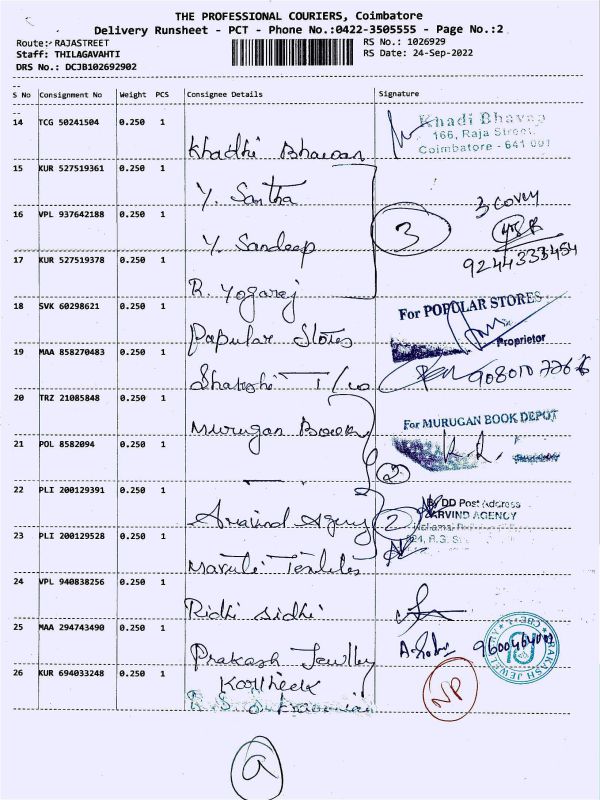 THE PROFESSIONAL COURIERS, Coimbatore
Delivery Runsheet - PCT - Phone No.:0422-3505555 - Page No.:2
Route:- RAJASTREET
RS No.: 1026929
Staff: THILAGAVAHTI
RS Date: 24-Sep-2022
DRS No.: DCJB102692902
S No Consignment No Weight PCS Consignee Details Signature
14 TCG 50241504 0.250 1 Khadhi Bhavan
Khadi Bhavan
166, Raja Street,
Coimbatore - 641 001
15 KUR 527519361 0.250 1 Y. Santha
16 VPL 937642188 0.250 1 Y. Sandeep
3
3 cover
9244333454
17 KUR 527519378 0.250 1 R. Yogaraj
18 SVK 60298621 0.250 1 Popular Stores
For POPULAR STORES
Proprietor
19 MAA 858270483 0.250 1 Shakthi T/co
20 TRZ 21085848 0.250 1 Murugan Book
For MURUGAN BOOK DEPOT
21 POL 8582094 0.250 1
2
22 PLI 200129391 0.250 1 Aravind Agency
2
By DD Post Address
ARVIND AGENCY
23 PLI 200129528 0.250 1 Maruti Textiles
24 VPL 940838256 0.250 1 Ridhi sidhi
25 MAA 294743490 0.250 1 Prakash Jewllry
PRAKASH JEWELLERY
26 KUR 694033248 0.250 1 Kartheek
NP
a